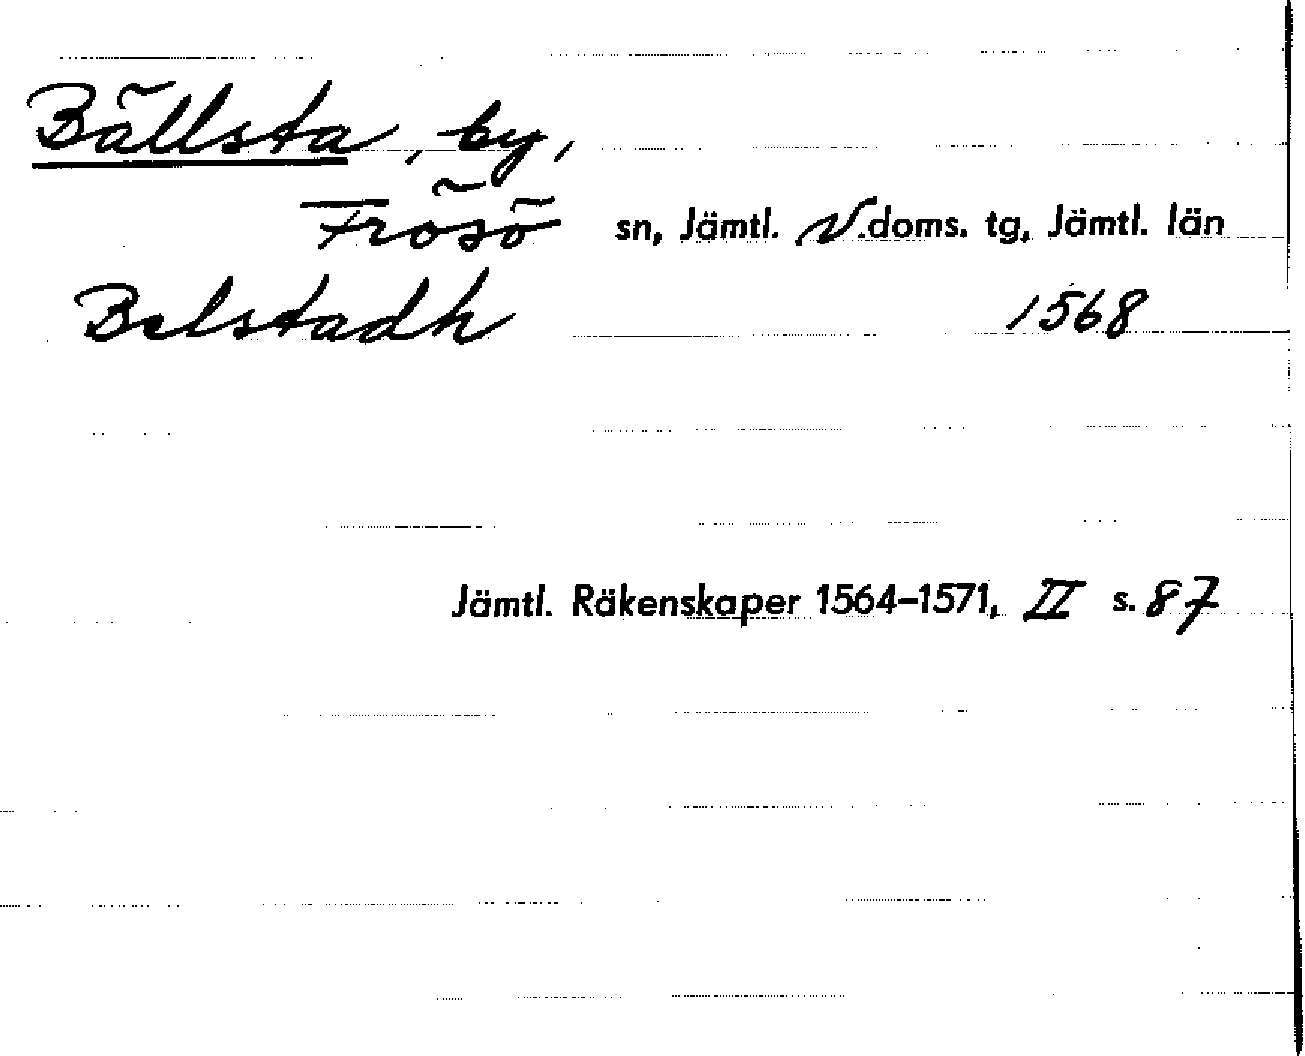 Bällsta, by,
Frösö sn, Jämtl. V.doms. tg, Jämtl. län
Belstadh 1568
Jämtl. Räkenskaper 1564–1571, II s. 87